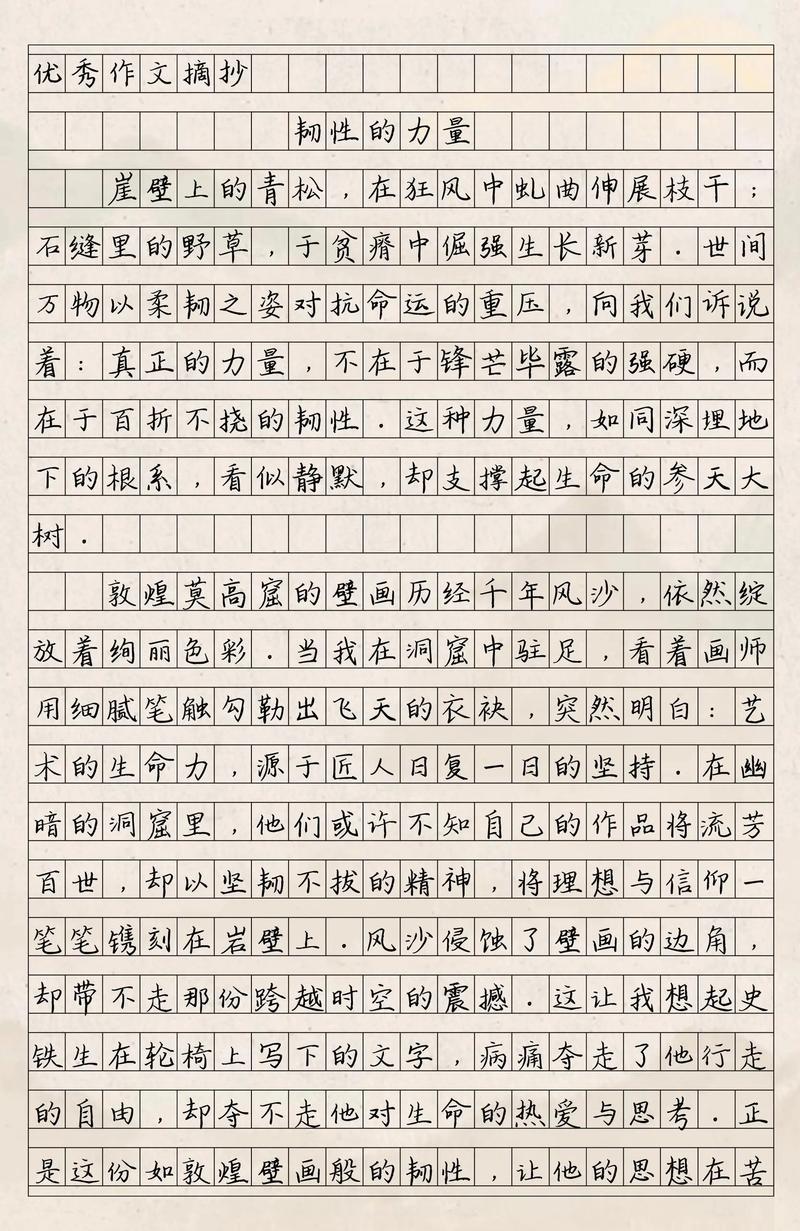 优秀作文摘抄
韧性的力量
崖壁上的青松，在狂风中虬曲伸展枝干；
石缝里的野草，于贫瘠中倔强生长新芽．世间
万物以柔韧之姿对抗命运的重压，向我们诉说
着：真正的力量，不在于锋芒毕露的强硬，而
在于百折不挠的韧性．这种力量，如同深埋地
下的根系，看似静默，却支撑起生命的参天大
树．
敦煌莫高窟的壁画历经千年风沙，依然绽
放着绚丽色彩．当我在洞窟中驻足，看着画师
用细腻笔触勾勒出飞天的衣袂，突然明白：艺
术的生命力，源于匠人日复一日的坚持．在幽
暗的洞窟里，他们或许不知自己的作品将流芳
百世，却以坚韧不拔的精神，将理想与信仰一
笔笔镌刻在岩壁上．风沙侵蚀了壁画的边角，
却带不走那份跨越时空的震撼．这让我想起史
铁生在轮椅上写下的文字，病痛夺走了他行走
的自由，却夺不走他对生命的热爱与思考．正
是这份如敦煌壁画般的韧性，让他的思想在苦